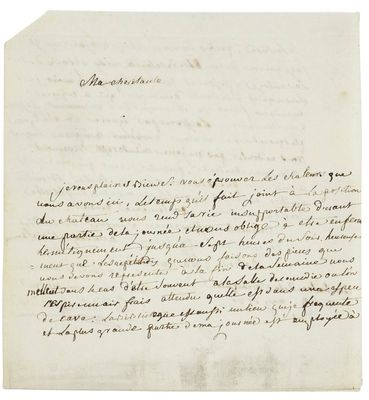 Ma chere tante
je vous plains si Dieuse. vous éprouver les chaleurs que
nous avons ici. Le temps qu'il fait joint à la position
du chateau nous rend la vie insupportable durant
une partie de la journée et nous oblige à être enfermé
hermetiquement jusqu'a sept heures du soir. heureuse-
ment que les repetitions que nous faisons des pieces que
nous devons representer à la fin de la semaine nous
mettent dans le cas d'être souvent à la salle de comedie ou l'on
respire un air frais attendu qu'elle est dans une espece
de cave. La bibliotheque est aussi un lieu que je frequente
et la plus grande partie de ma journée est employée à